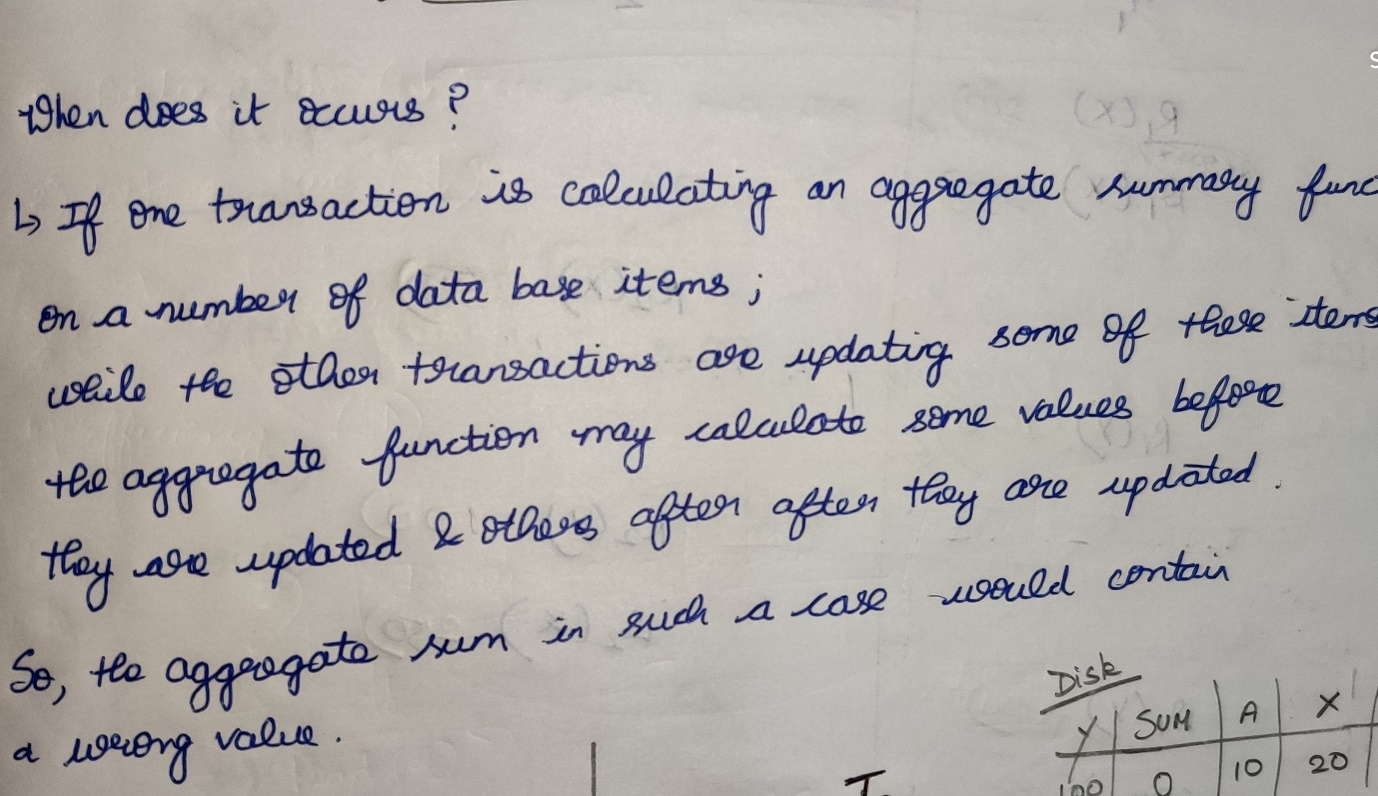 When does it occurs ?
↳ If one transaction is calculating an aggregate summary func
on a number of data base items ;
while the other transactions are updating some of these items
the aggregate function may calculate some values before
they are updated & others after after they are updated .
So, the aggregate sum in such a case would contain
a wrong value .
Disk
Y | SUM | A | X
100 | 0 | 10 | 20